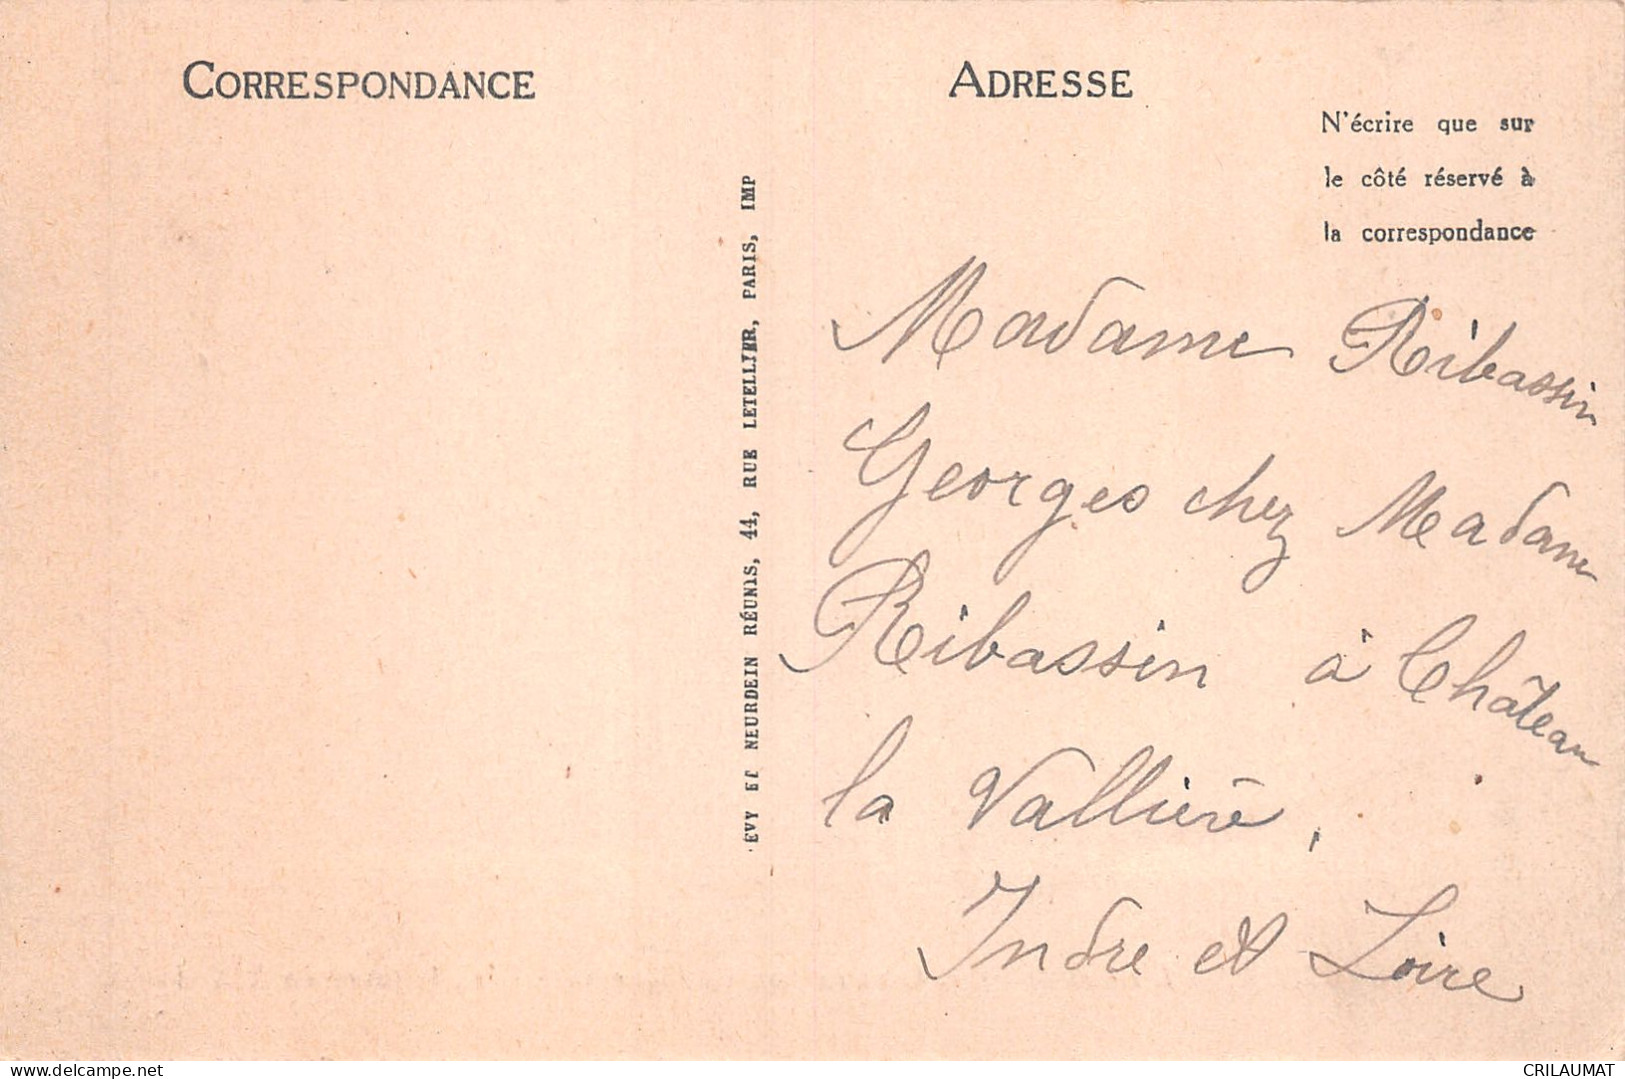 CORRESPONDANCE
ADRESSE
N'écrire que sur
le côté réservé à
la correspondance
EVY ET NEURDEIN RÉUNIS, 44, RUE LETELLIER, PARIS, IMP
Madame Ribassin
Georges chez Madame
Ribassin à Château
la Vallière,
Indre et Loire
www.delcampe.net
CRILAUMAT